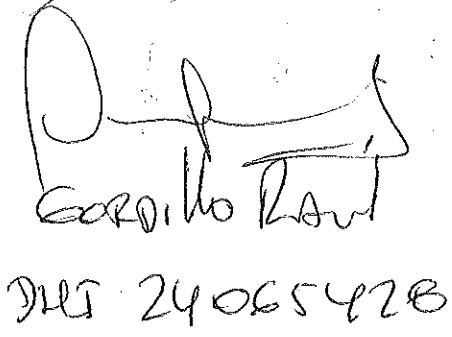 GORDIllO RAUl
DNI 24065428